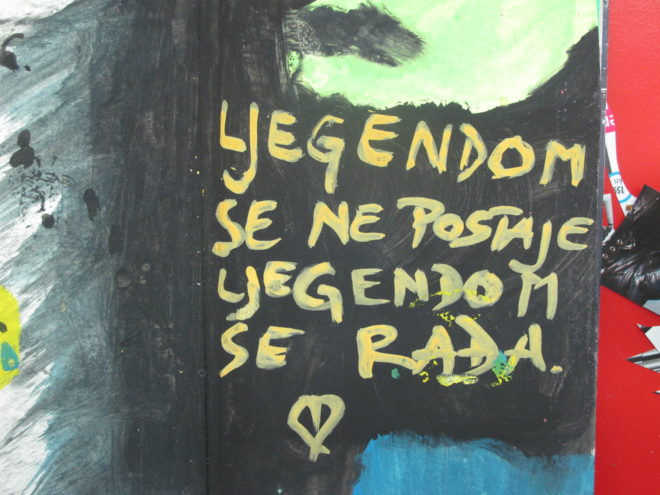 LJEGENDOM
SE NE POSTAJE
LJEGENDOM
SE RAĐA.